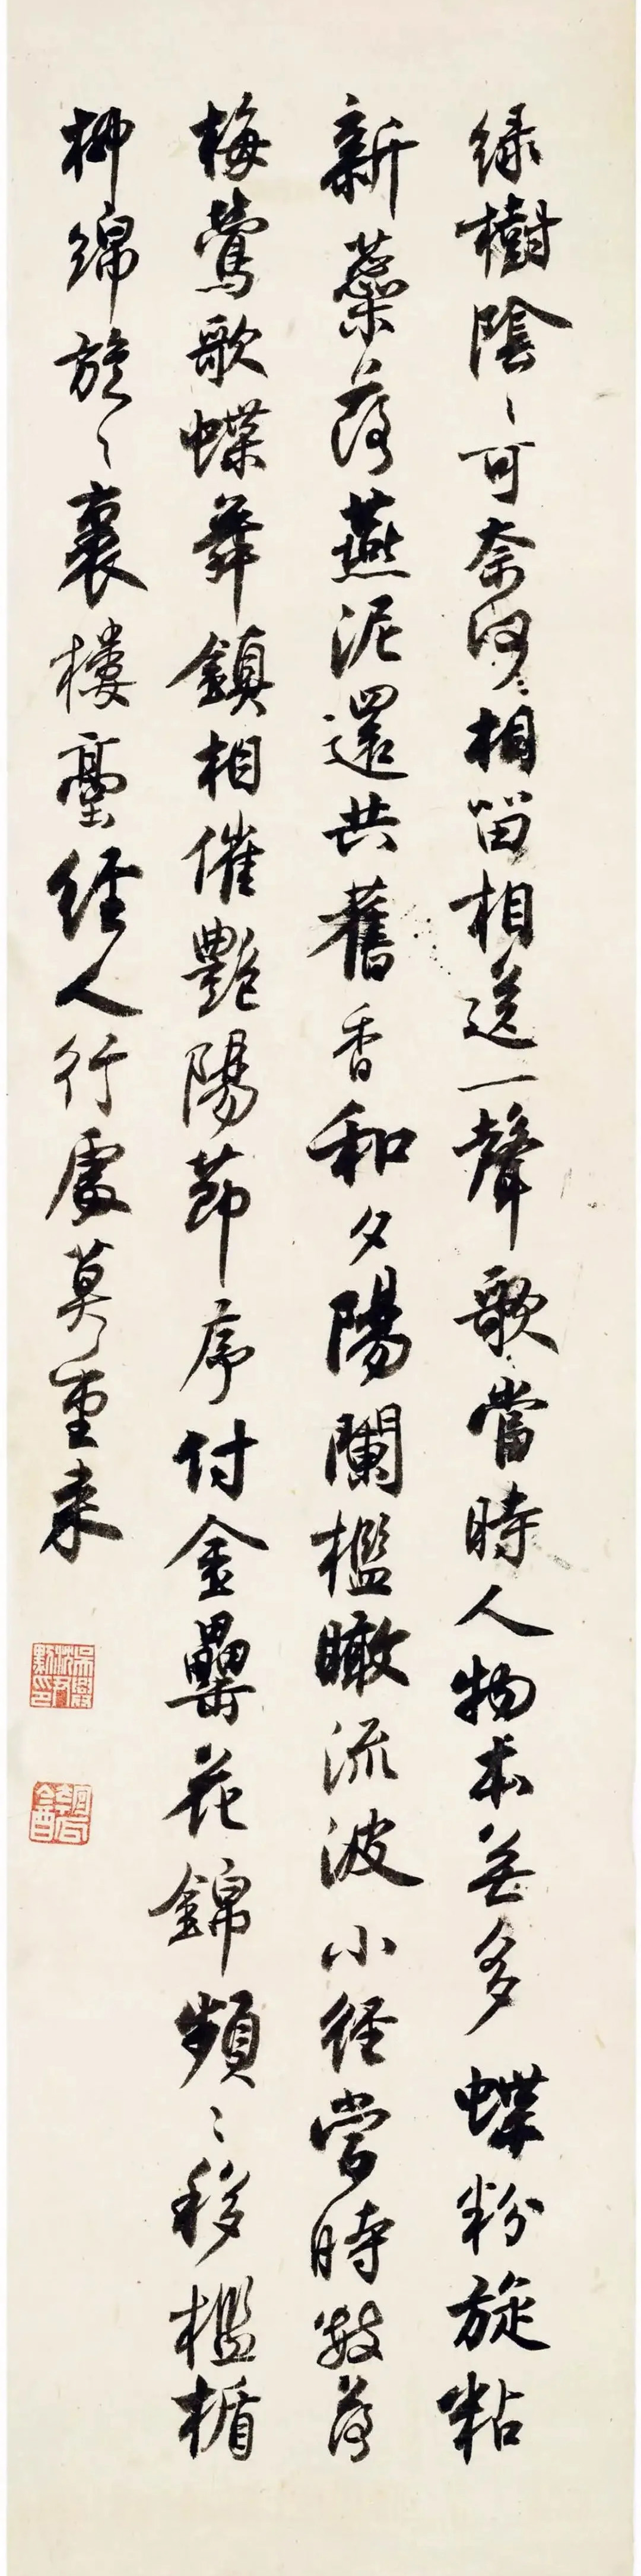 綠樹陰〻可奈何相留相送一聲歌當時人物本無多蝶粉旋粘
新蘂落燕泥還共舊香和夕陽闌檻瞰流波小徑當時散落
梅鶯歌蝶舞鎮相催艷陽節序付金罍花錦頻〻移檻楯
柳綿旋〻裹樓臺經人行處莫重来
吳興沈尹默印